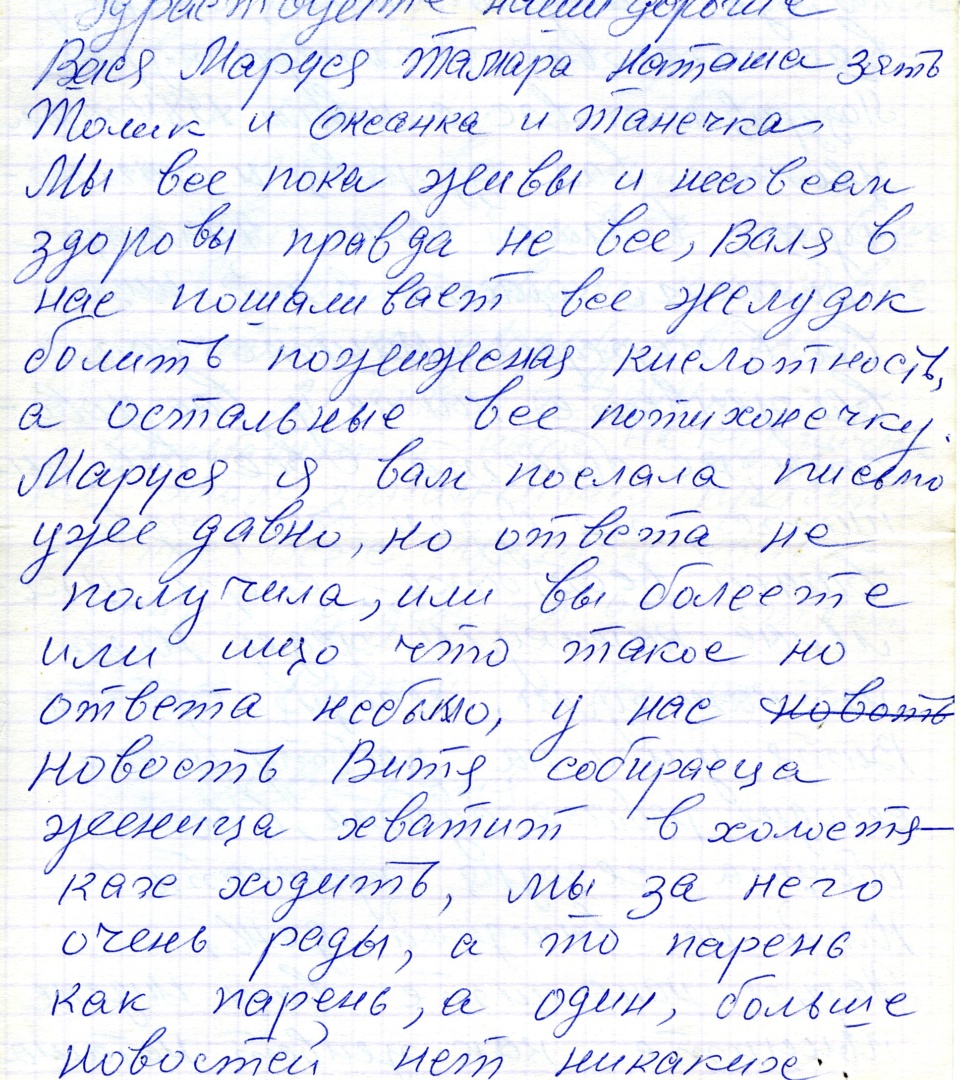 Здраствуйте наши дорогие
Вася Маруся Тамара Наташа зять
Толик и Оксанка и Танечка
Мы все пока живы и несовсем
здоровы правда не все, Валя в
нас пошаливает все желудок
болить пониженая кислотность,
а остальные все потихонечку.
Маруся я вам послала письмо
уже давно, но ответа не
получила, или вы болеете
или що что такое но
ответа небыло, у нас новость
новость Витя собираеца
женица хватит в холостя-
ках ходить, мы за него
очень рады, а то парень
как парень, а один, больше
новостей нет никаких.